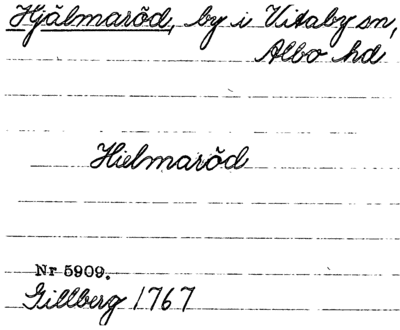 Hjälmaröd, by i Vitaby sn,
Albo hd
Hielmaröd
Nr 5909.
Gillberg 1767